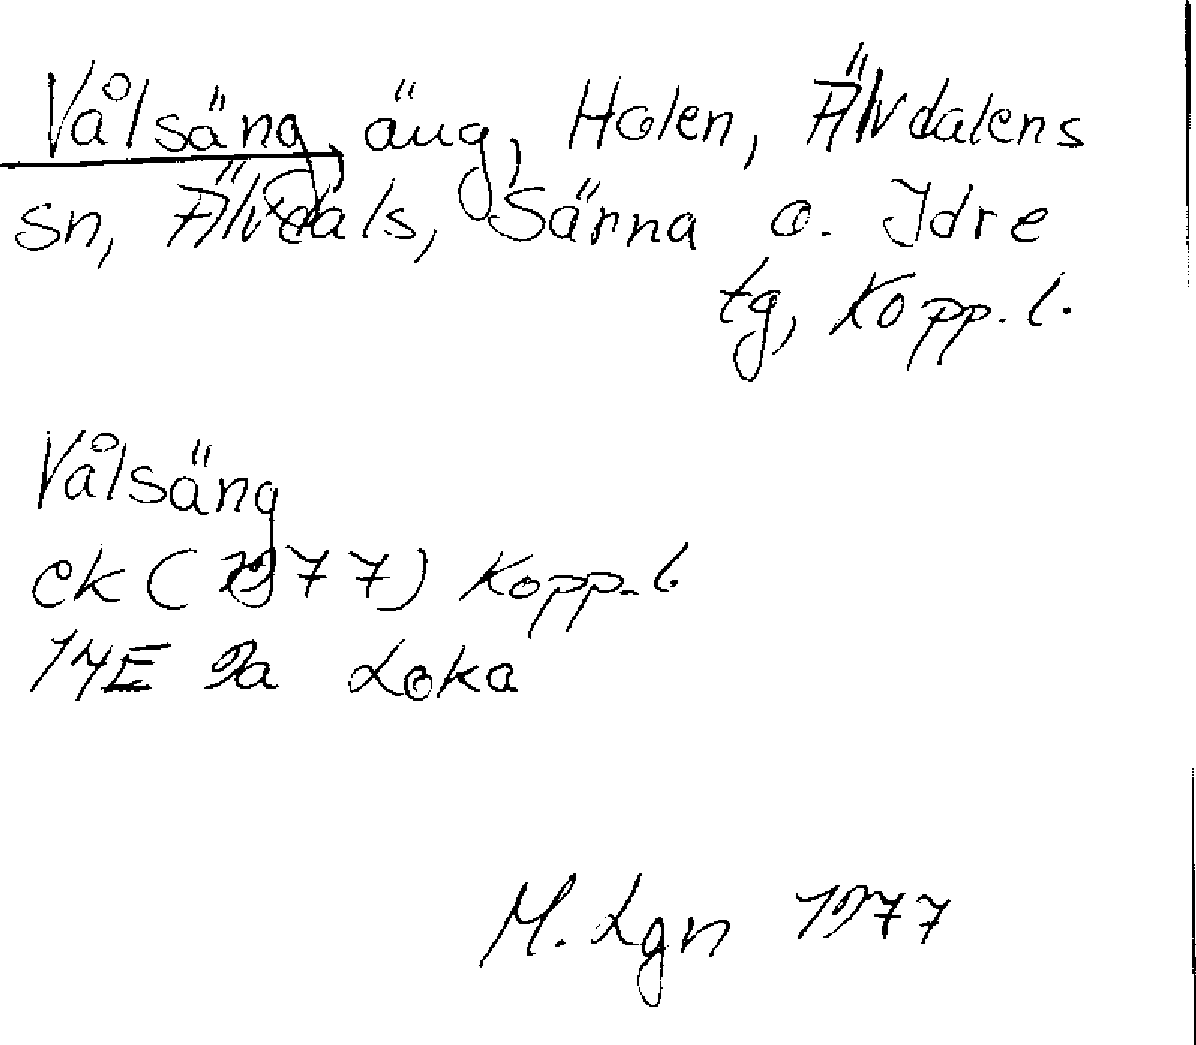 Vålsäng, äng, Holen, Älvdalens
sn, Älvdals, Särna o. Idre
tg, Kopp. l.
Vålsäng
ek (1977) Kopp. l.
14E 9a Loka
M. Lgn 1977